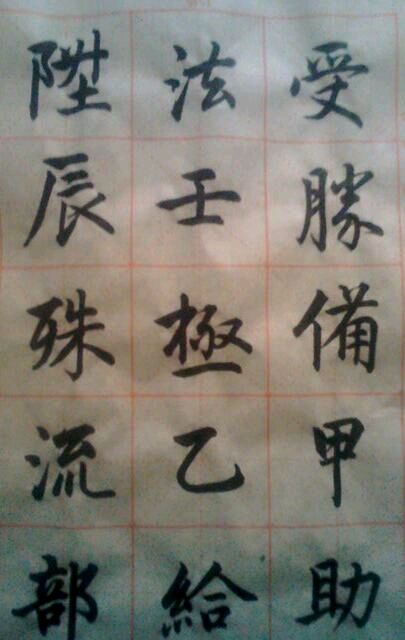 受勝備甲助
法壬極乙給
陞辰殊流部